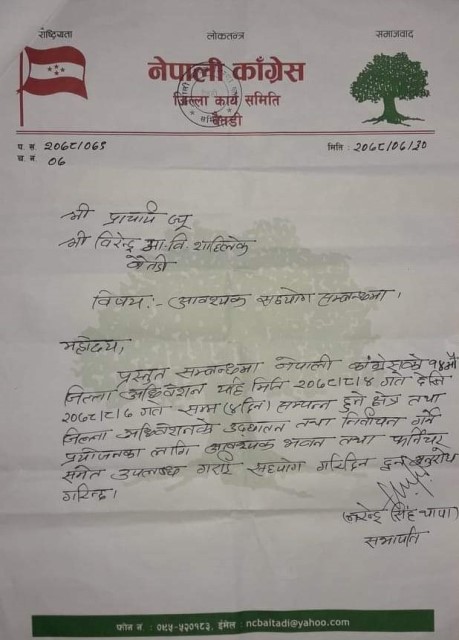 राष्ट्रियता लोकतन्त्र समाजवाद
नेपाली काँग्रेस
जिल्ला कार्य समिति
बैतडी
प. सं. २०७८/०७९
च. नं. ०७
मिति : २०७८/०७/३०
श्री प्राचार्य ज्यू
श्री विरेन्द्र मा.वि. शाहिलेक
बैतडी
विषय:- आवश्यक सहयोग सम्बन्धमा ।
महोदय,
प्रस्तुत सम्बन्धमा नेपाली काँग्रेसको १४औं
जिल्ला अधिवेशन यहि मिति २०७८/८/४ गते देखि
२०७८/८/७ गते सम्म (४ दिन) सम्पन्न हुने क्षेत्र तथा
जिल्ला अधिवेशनको उद्घाटन तथा निर्वाचन गर्ने
प्रयोजनका लागि आवश्यक भवन तथा फर्निचर
समेत उपलब्ध गराई सहयोग गरिदिन हुन अनुरोध
गरिन्छ ।
(नरेन्द्र सिंह थापा)
सभापति
फोन नं. : ०९५-५२०१८३, ईमेल : ncbaitadi@yahoo.com